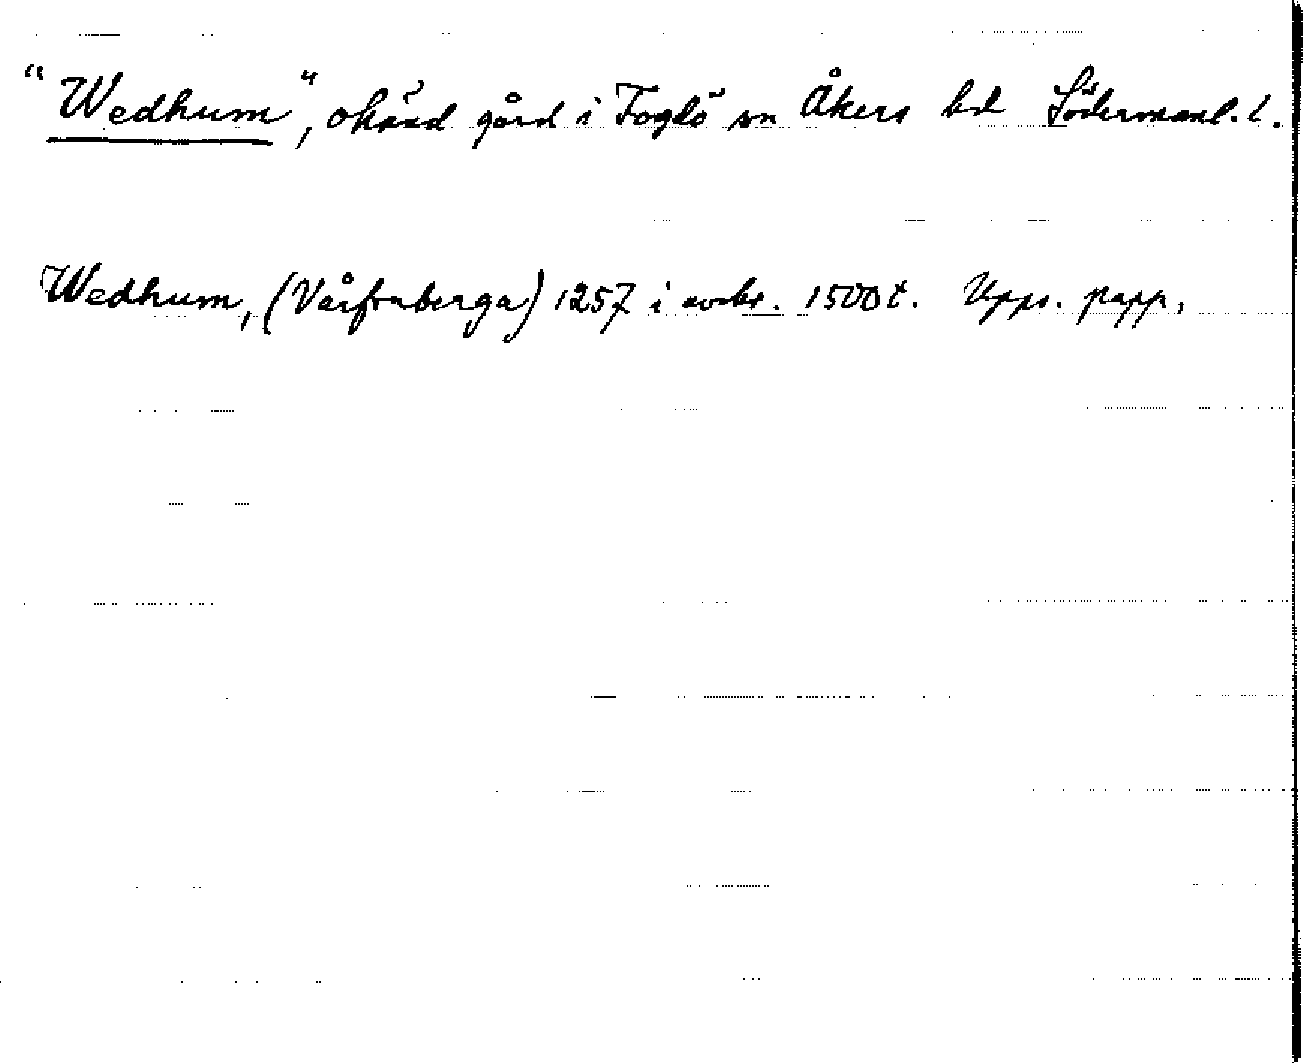 "Wedhum", okänd gård i Fogdö sn Åkers hd Södermanl. l.
Wedhum, (Vårfruberga) 1257 i avskr. 1500 t. Upps. papp.